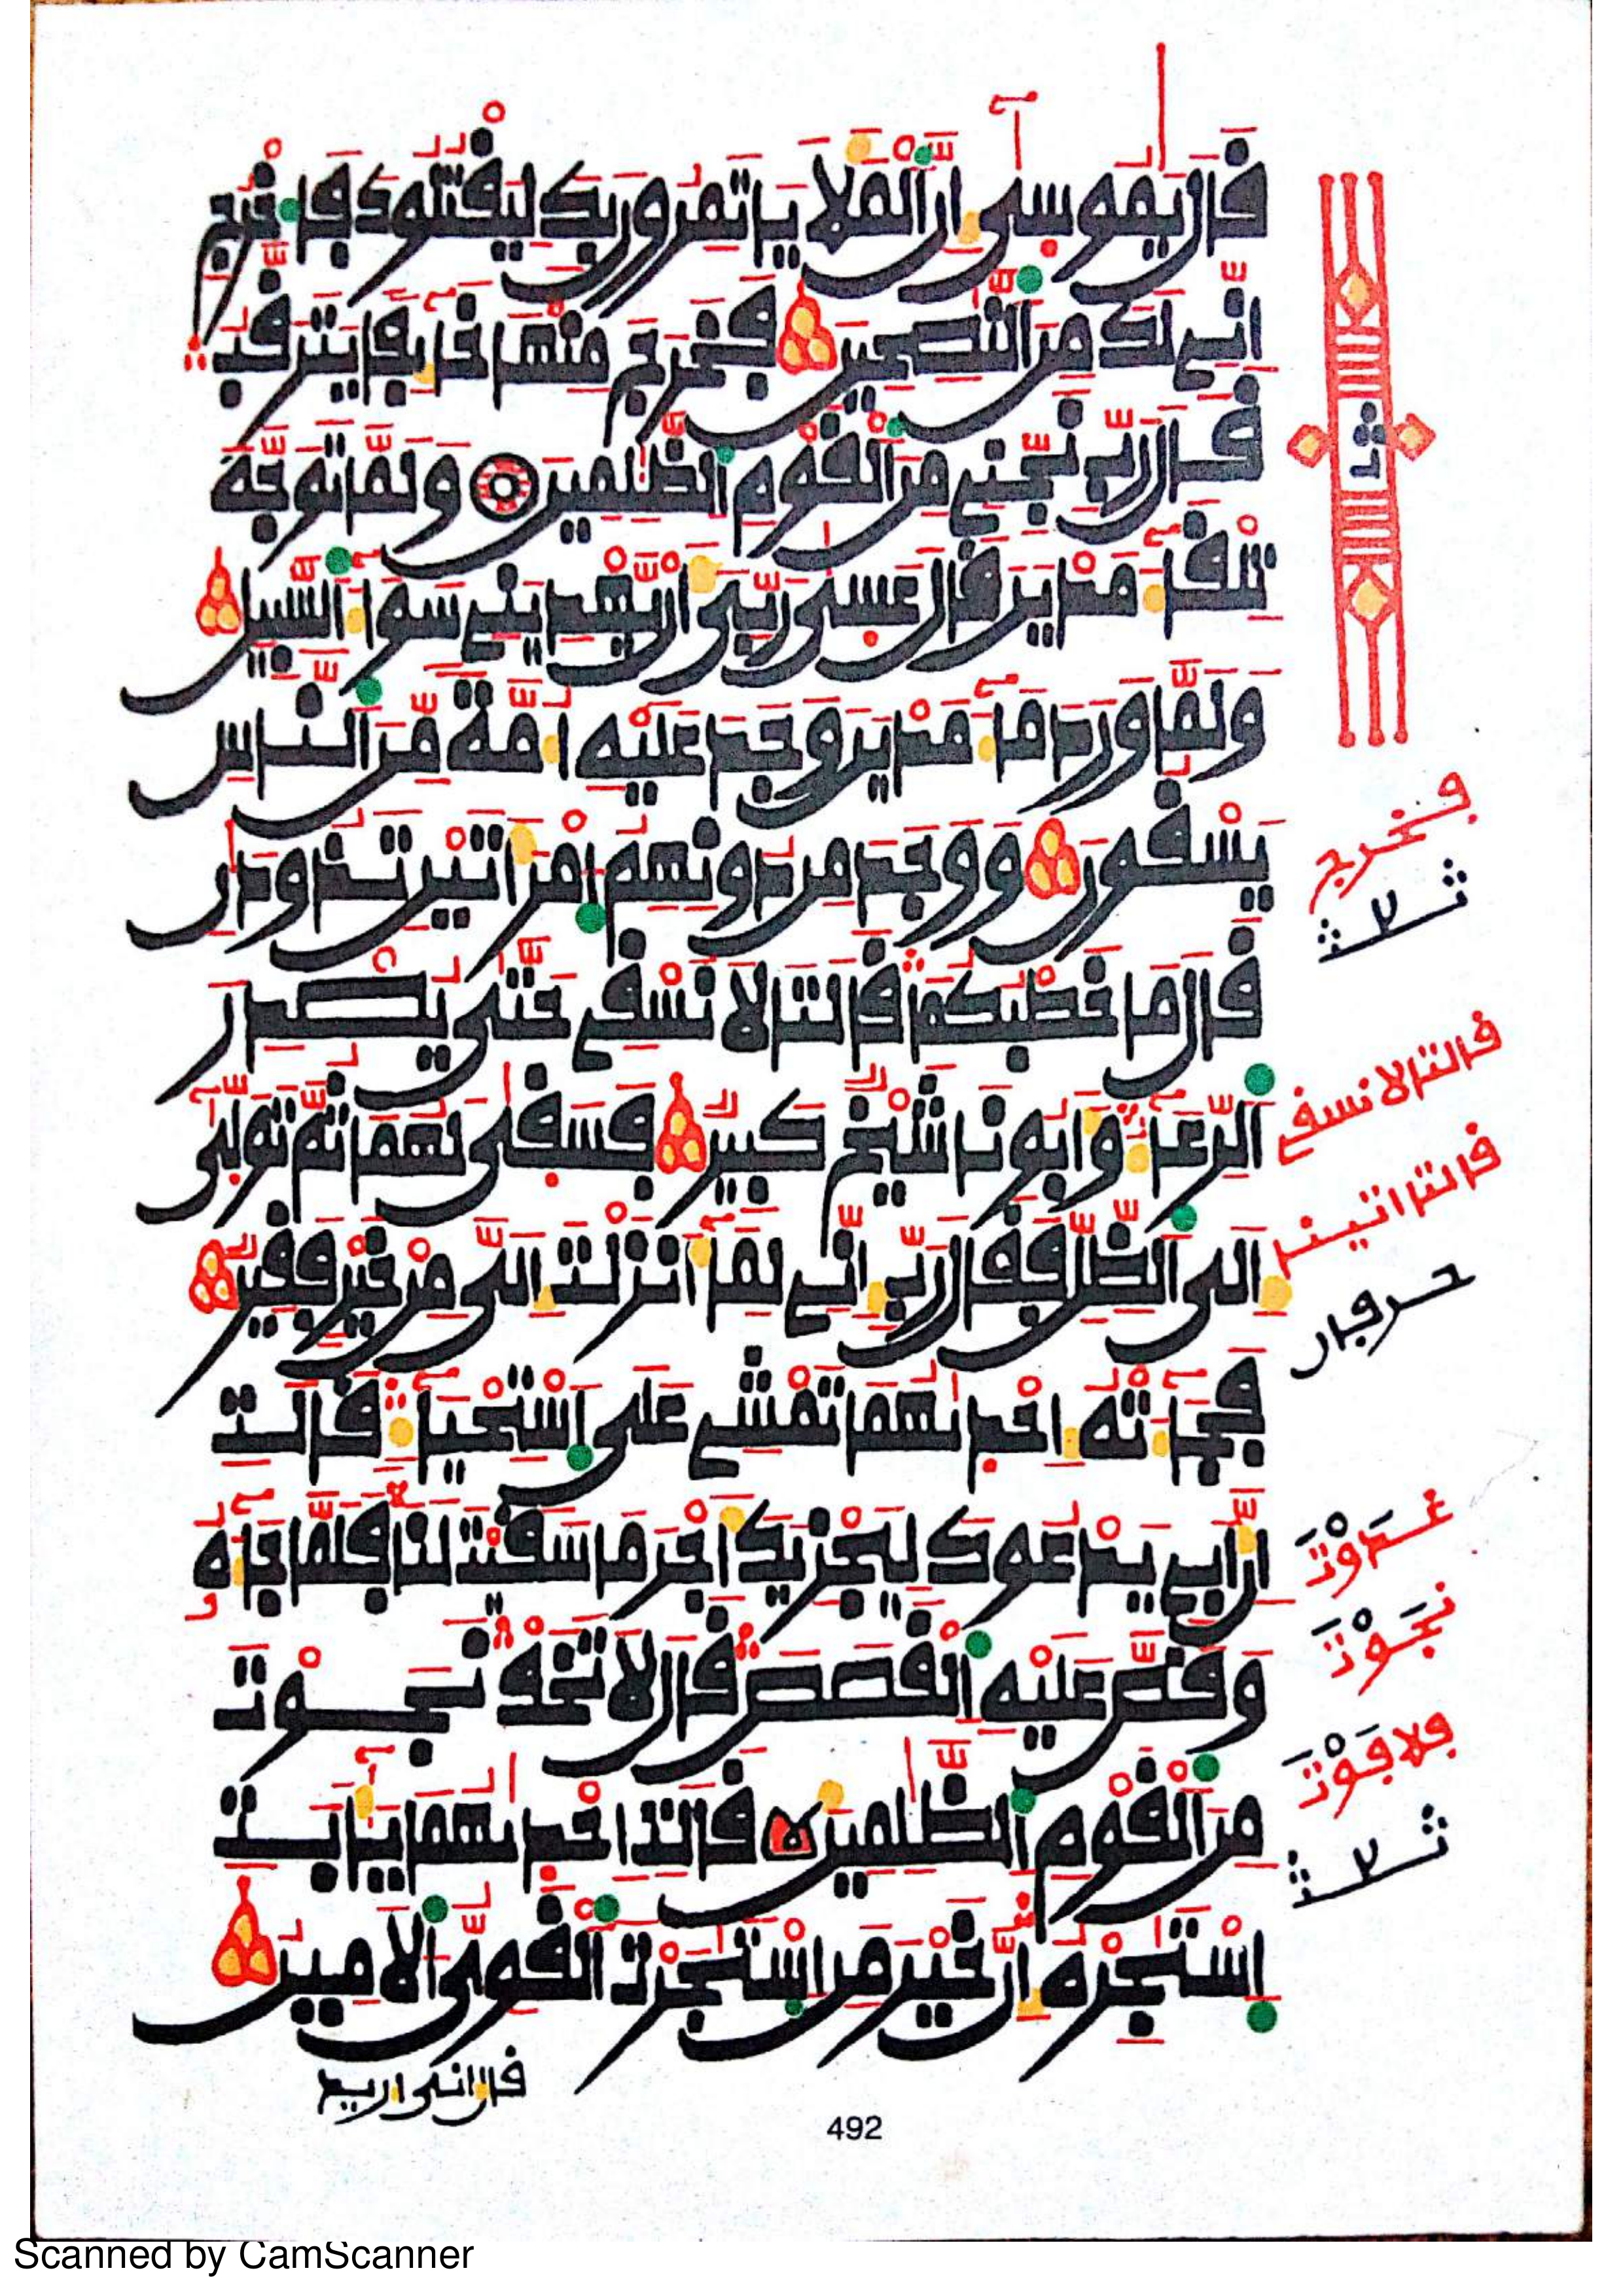 قال يموسى إن الملأ يأتمرون بك ليقتلوك فاخرج
إني لك من النصحين فخرج منها خائفا يترقب
قال رب نجني من القوم الظلمين ولما توجه
تلقاء مدين قال عسى ربي أن يهديني سواء السبيل
ولما ورد ماء مدين وجد عليه أمة من الناس
يسقون ووجد من دونهم امرأتين تذودان
قال ما خطبكما قالتا لا نسقي حتى يصدر
الرعاء وأبونا شيخ كبير فسقى لهما ثم تولى
إلى الظل فقال رب إني لما أنزلت إلي من خير فقير
فجاءته إحدىهما تمشي على استحياء قالت
إن أبي يدعوك ليجزيك أجر ما سقيت لنا فلما جاءه
وقص عليه القصص قال لا تخف نجوت
من القوم الظلمين قالت إحدىهما يأبت
استجره إن خير من استجرت القوي الأمين
قال إني أريد
ثمن
فخرج
قالتا لا نسقي
قالتا اتين
حرفان
غدوت
نجوت
فلا فوت
492
Scanned by CamScanner